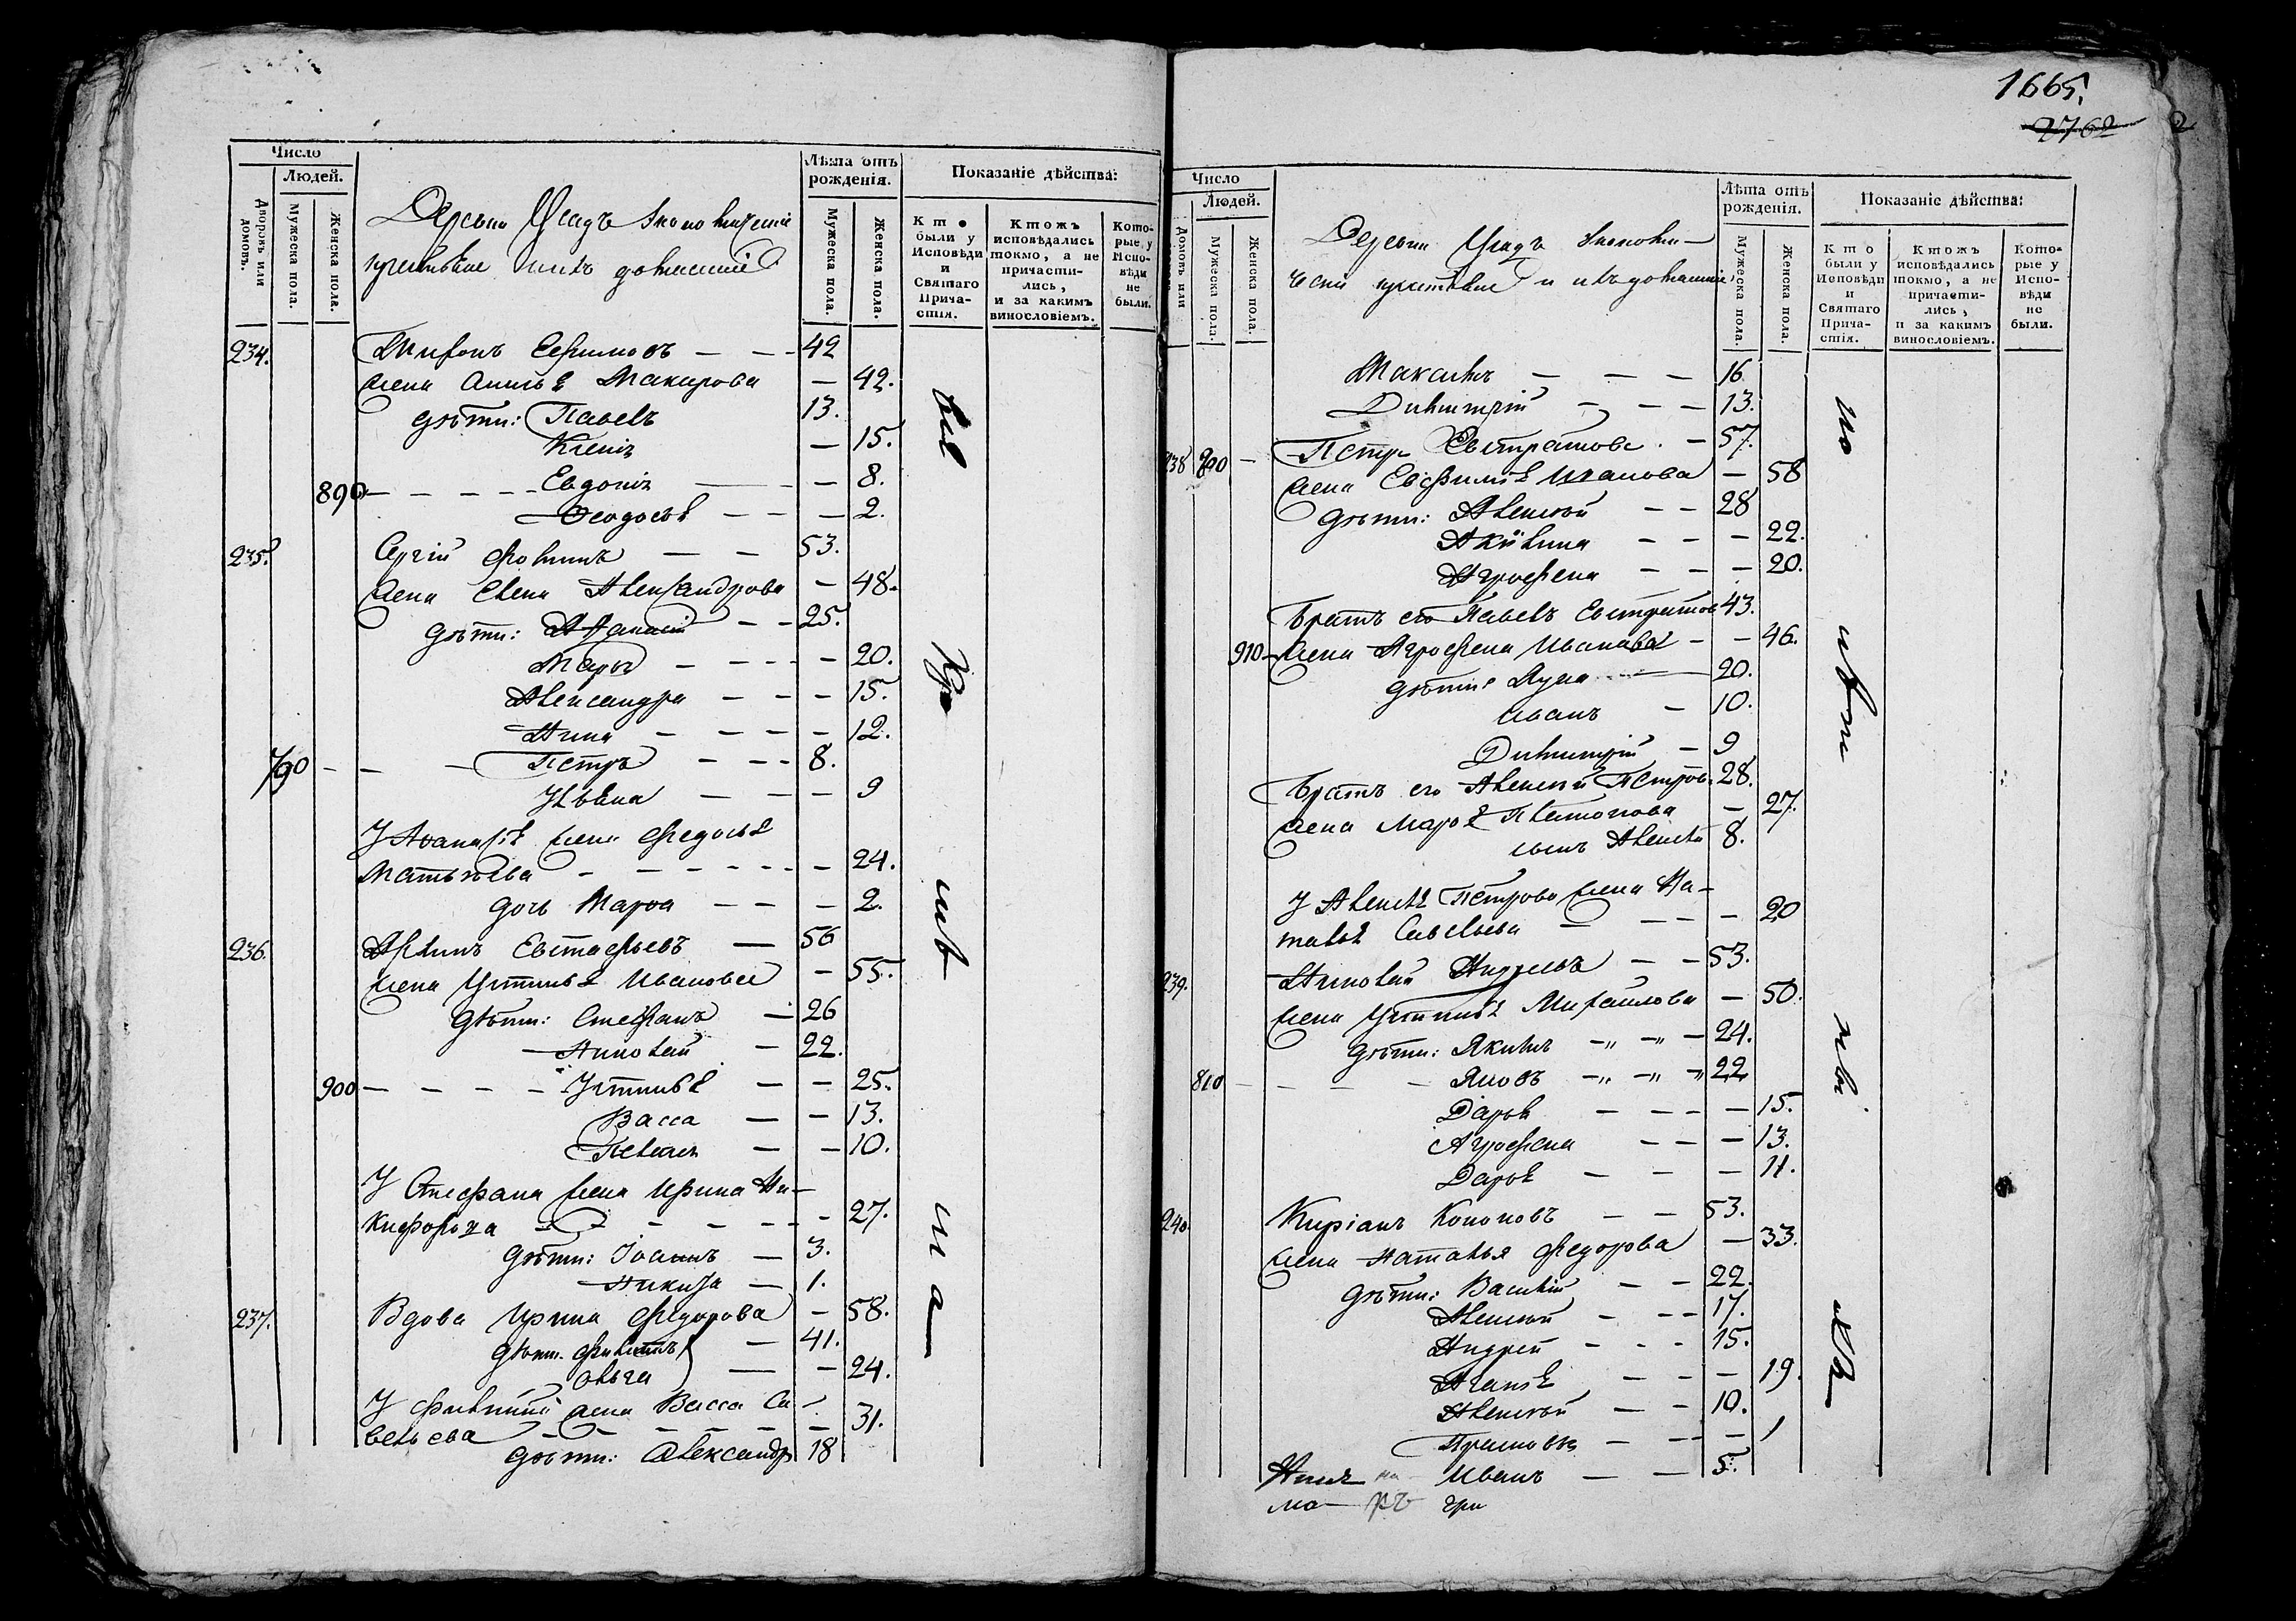 Число
Людей.
Дворовъ или домовъ.
Мужеска пола.
Женска пола.
Лѣта отъ рожденія.
Мужеска пола.
Женска пола.
Показаніе дѣйства:
Кто были у Исповѣди и Святаго Прича- стія.
Ктожъ исповѣдались токмо, а не причасти- лись, и за какимъ винословіемъ.
Кото- рые у Испо- вѣди не были.
Деревни
234. Миронъ Ефимовъ — — 42
жена Анисья Макарова — 42.
дѣти: Павелъ 13.
Ксенія — 15.
890 — — — — Евдокія — 8.
Ѳеодосья — — — 2.
235. Сергій Фоминъ — — 53.
жена Елена Александрова — 48.
дѣти: Аѳанасій — — 25.
Марья — — — — 20.
Александра — — — 15.
Анна — — — — 12.
790 — — — Петръ — — — 8.
Ульяна — — — 9
У Аѳанасія жена Федосья
Матвѣева — — — — — — 24.
дочь Марѳа — — — 2.
236. Евстафьевъ — 56
жена Устинья Иванова — 55.
дѣти: Стефанъ — 26
Николай — 22.
900 — — — — Устинья — — 25.
Васса — — 13.
Пелагея — — 10.
У Стефана жена Ирина Ни-
кифорова — — — — — 27.
дѣти: Іоаннъ — 3.
Никита — 1.
237. Вдова Ирина Федорова — 58.
дѣти. — 41.
Ольга — — 24.
У жена Васса Са-
вельева — — — — — 31.
дѣти: Александръ 18
1665.
2762
2
Число
Людей.
Домовъ или
Мужеска пола.
Женска пола.
Лѣта отъ рожденія.
Мужеска пола.
Женска пола.
Показаніе дѣйства:
Кто были у Исповѣди и Святаго Прича- стія.
Ктожъ исповѣдались токмо, а не причасти- лись, и за какимъ винословіемъ.
Кото- рые у Испо- вѣди не были.
Деревни
Максимъ — — — 16
Димитрій — — — 13.
238 800 — Петръ Евстратовъ — 57.
жена Евфимія Иванова — 58
дѣти: Алексѣй — — 28
Акилина — — — 22.
Агрофена — — — 20.
Братъ его Павелъ Евстратов 43.
910 — жена Агрофена Иванова — — 46.
дѣти: Лука — 20.
Иванъ — 10.
Димитрій — 9
Братъ его Алексѣй Петров. 28.
жена Марѳа Платонова — 27.
сынъ Алексѣй 8.
У Алексѣя Петрова жена На-
талья Савельева — — — — 20
239. Николай Андреевъ — — 53.
жена Устинья Михайлова — 50.
дѣти: Якимъ —„ —„ — 24.
810 — — — — Яковъ —„ —„ —„ 22
Дарья — — — — 15.
Агрофена — — — 13.
Дарья — — — 11.
240. Киріанъ Кононовъ — — 53.
жена Наталья Федорова — 33.
дѣти: Василій — — 22.
Алексѣй — — — 17.
Андрей — — — 15.
Агафья — — — 19.
Алексѣй — — 10.
Прасковья — — — 1
Иванъ — — 5.